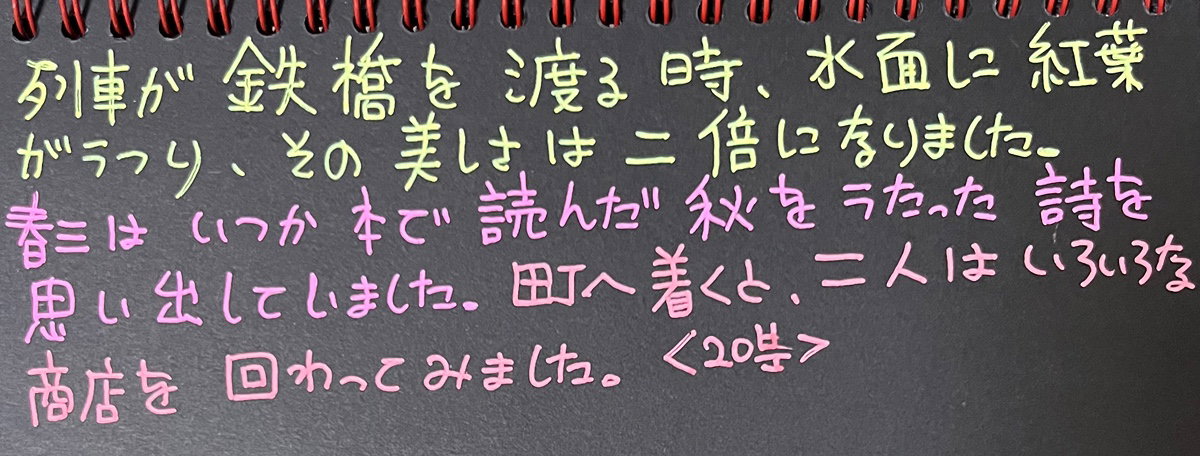 列車が鉄橋を渡る時、水面に紅葉
がうつり、その美しさは二倍になりました。
春三はいつか本で読んだ秋をうたった詩を
思い出していました。町へ着くと、二人はいろいろな
商店を回わってみました。<20분>